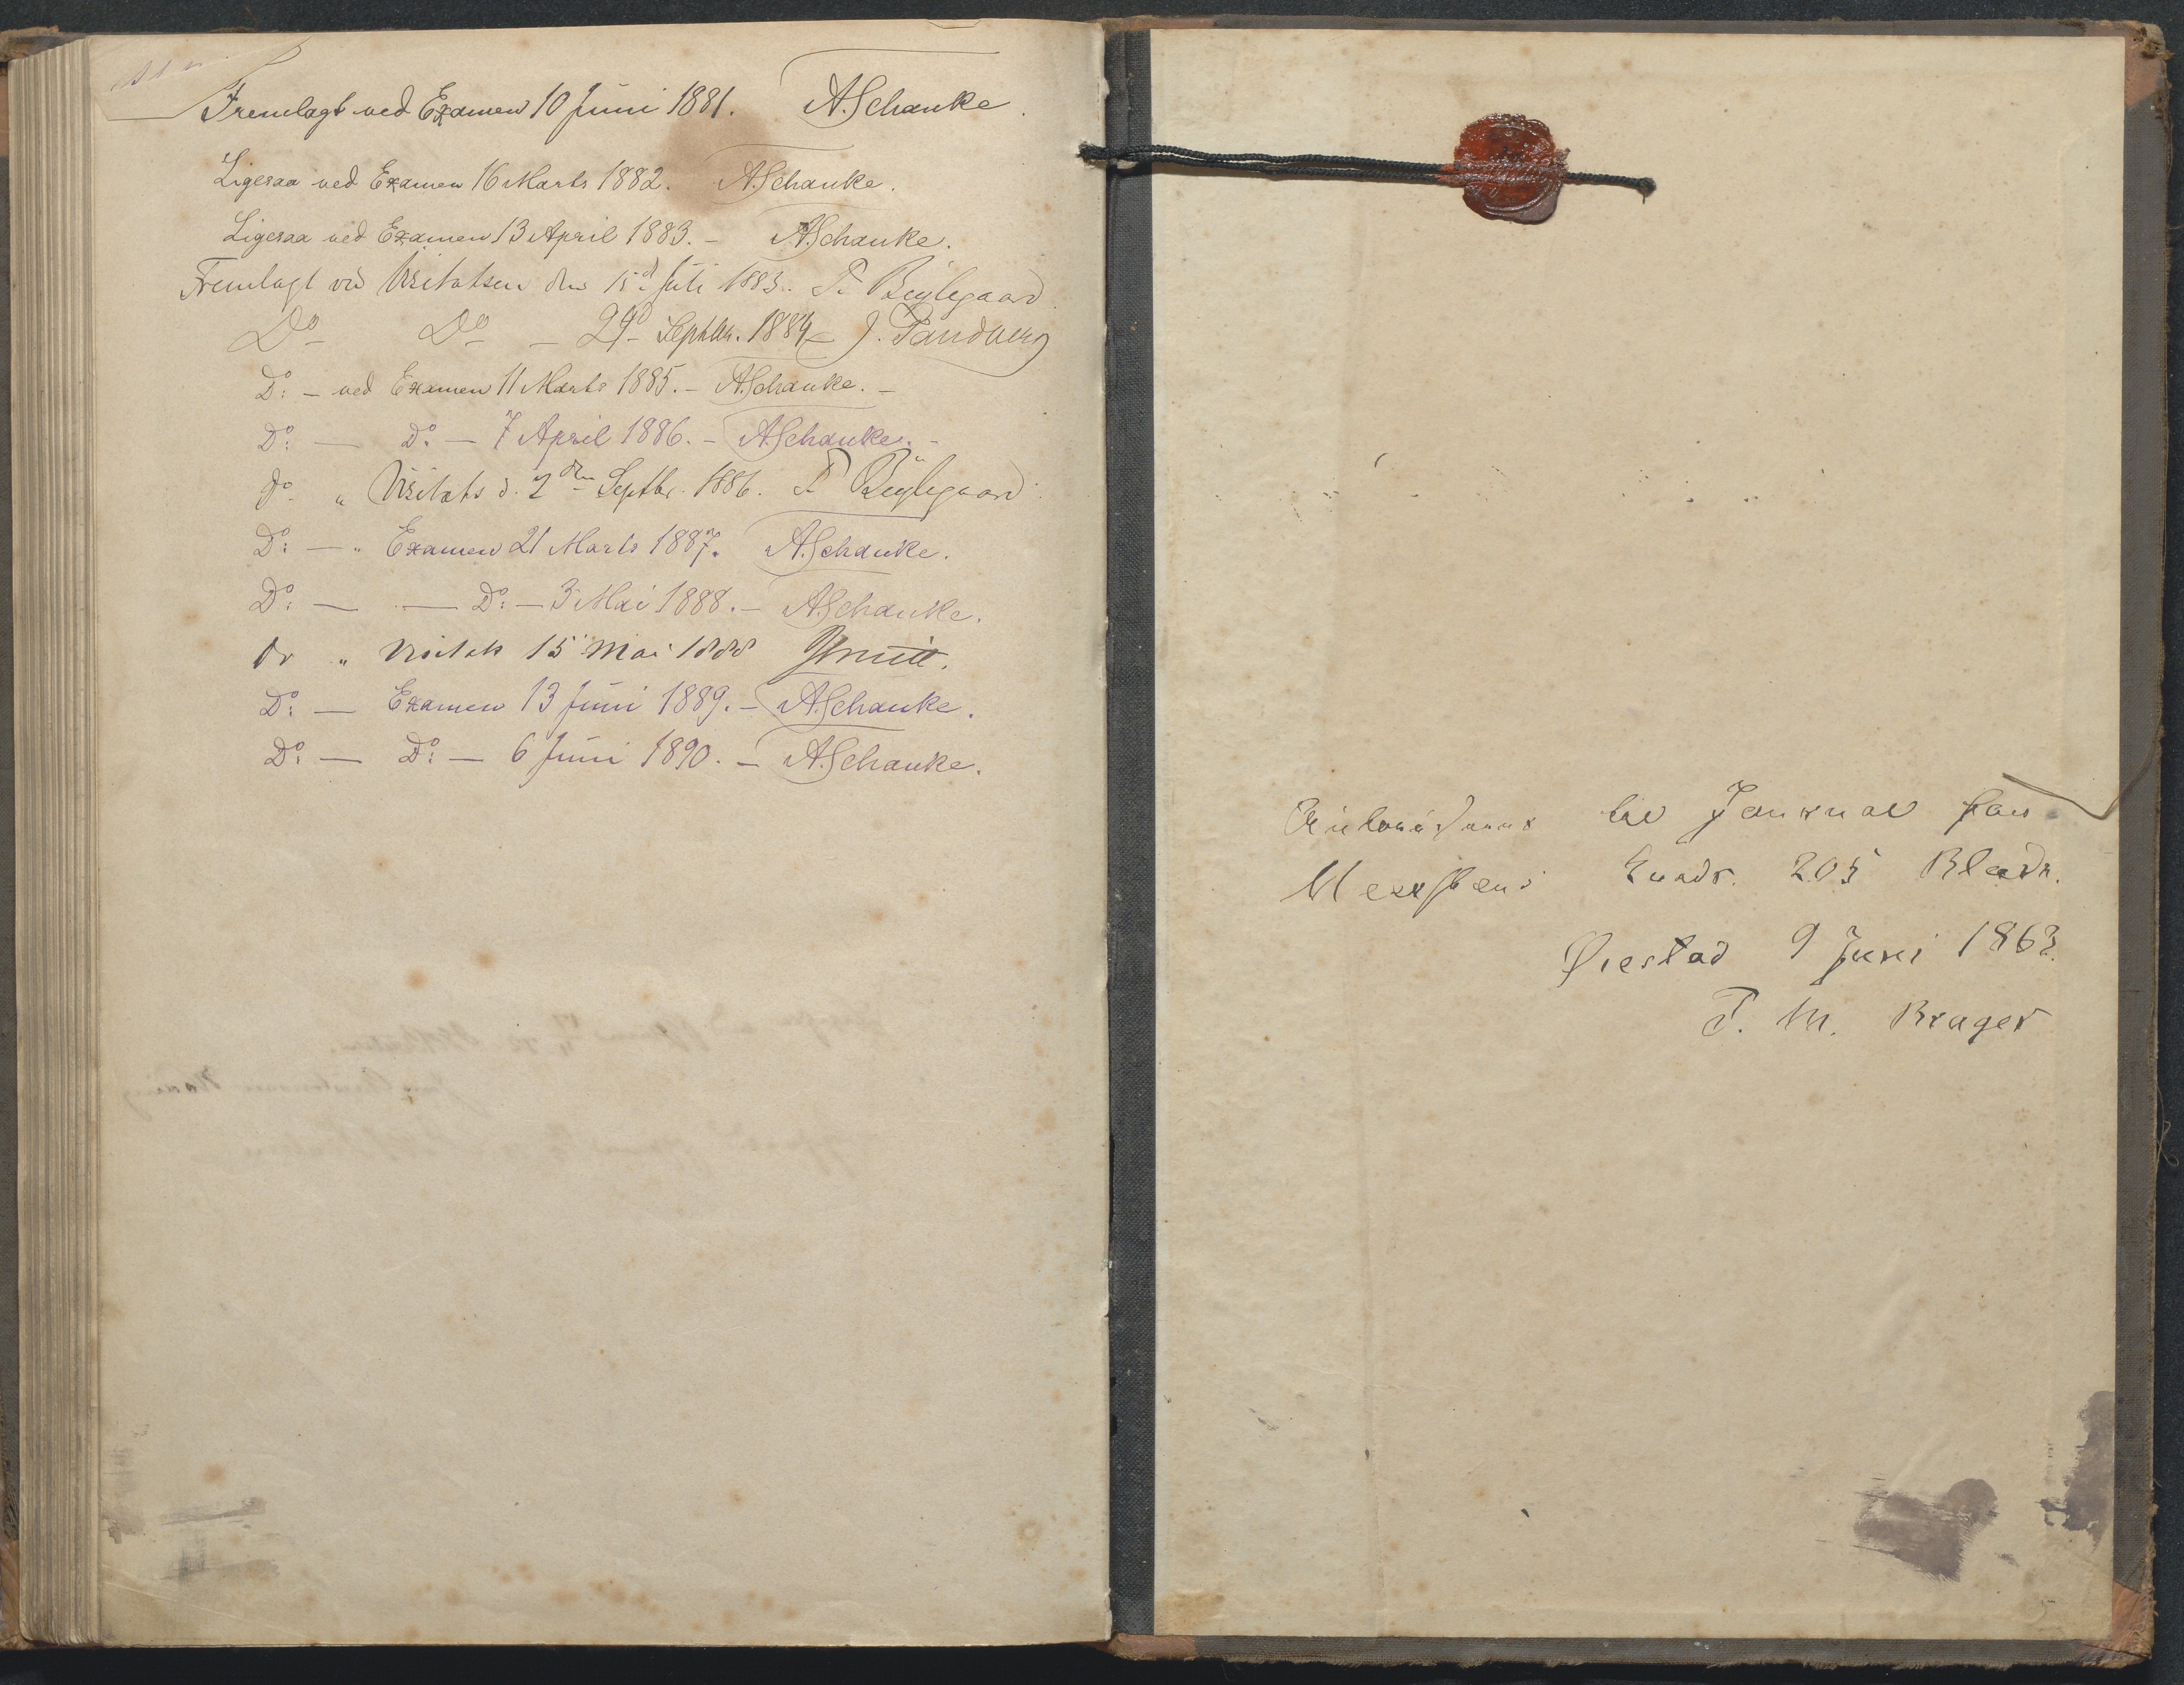 Fremlagt ved Examen 10 Juni 1881. A. Schanke.
Ligesaa ved Examen 16 Marts 1882. A. Schanke.
Ligesaa ved Examen 13 April 1883. – A. Schanke.
Fremlagt ved Visitatsen den 15d Juli 1883.
Do Do – 29d Septbr. 1884 – J.
Do: – ved Examen 11 Marts 1885. – A. Schanke. –
Do: – Do: – 7 April 1886. – A. Schanke. –
do. " Visitats d. 2den Septbr. 1886.
Do: – " Examen 21 Marts 1887. A. Schanke.
Do: – – Do: – 3 Mai 1888. – A. Schanke.
do " Visitats 15 Mai 1888 Smitt.
Do: – Examen 13 Juni 1889. – A. Schanke.
Do: – Do: – 6 Juni 1890. – A. Schanke.
til Journal for
205 Blade.
Øiestad 9 Juni 1863.
T. M. Brager